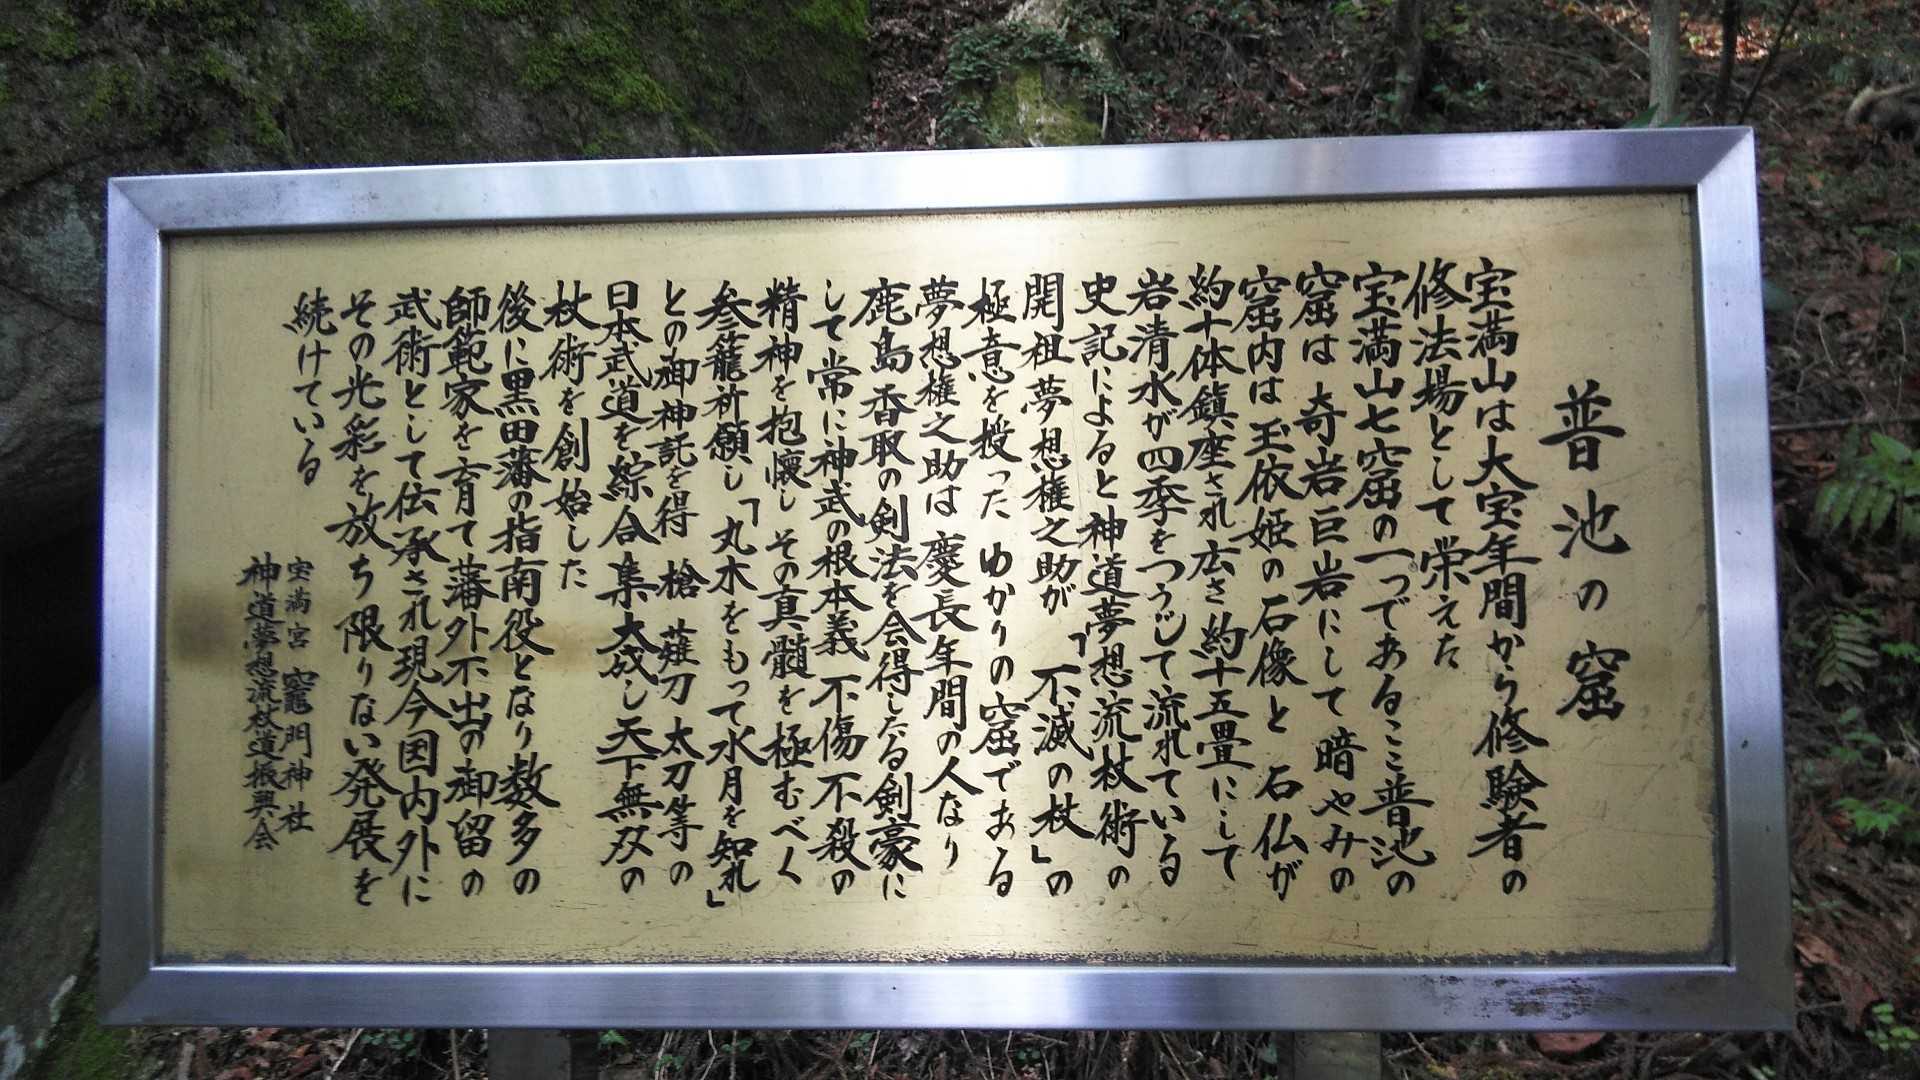 普池の窟
宝満山は大宝年間から修験者の
修法場として栄えた
宝満山七窟の一つであるここ普池の
窟は 奇岩巨岩にして暗やみの
窟内は玉依姫の石像と 石仏が
約十体鎮座され広さ約十五畳にして
岩清水が四季をつうじて流れている
史記によると神道夢想流杖術の
開祖夢想権之助が 「不滅の杖」の
極意を授った ゆかりの窟である
夢想権之助は 慶長年間の人なり
鹿島香取の剣法を会得したる剣豪に
して常に神武の根本義 不傷不殺の
精神を抱懐し その真髄を極むべく
参籠祈願し「丸木をもって水月を知れ」
との御神託を得 槍 薙刀 太刀等の
日本武道を綜合集大成し天下無双の
杖術を創始した
後に黒田藩の指南役となり数多の
師範家を育て藩外不出の御留の
武術として伝承され現今国内外に
その光彩を放ち限りない発展を
続けている
宝満宮 竈門神社
神道夢想流杖道振興会